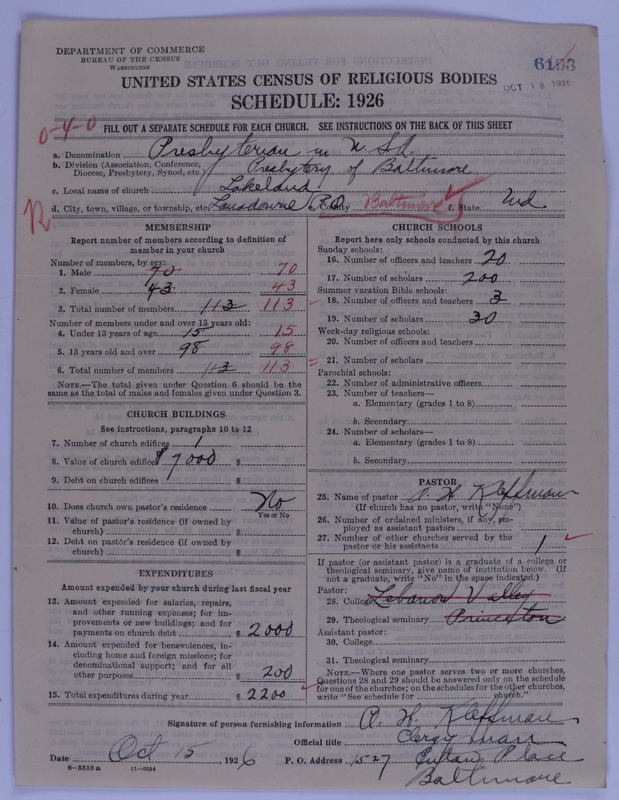 DEPARTMENT OF COMMERCE
BUREAU OF THE CENSUS
WASHINGTON
OCT 18 1926
UNITED STATES CENSUS OF RELIGIOUS BODIES
SCHEDULE: 1926
0-4-0
FILL OUT A SEPARATE SCHEDULE FOR EACH CHURCH. SEE INSTRUCTIONS ON THE BACK OF THIS SHEET
a. Denomination Presbyterian in U S A
b. Division (Association, Conference, Diocese, Presbytery, Synod, etc.) Presbytery of Baltimore
c. Local name of church Lakeland
d. City, town, village, or township, etc. Lansdowne e. County Baltimore f. State Md
R
MEMBERSHIP
Report number of members according to definition of
member in your church
Number of members, by sex:
1. Male 70 70
2. Female 43 43
3. Total number of members 113 113
Number of members under and over 13 years old:
4. Under 13 years of age 15 15
5. 13 years old and over 98 98
6. Total number of members 113 113
NOTE.—The total given under Question 6 should be the
same as the total of males and females given under Question 3.
CHURCH BUILDINGS
See instructions, paragraphs 10 to 12
7. Number of church edifices 1
8. Value of church edifices $7000 $
9. Debt on church edifices $
10. Does church own pastor's residence? No
Yes or No
11. Value of pastor's residence (if owned by
church) $
12. Debt on pastor's residence (if owned by
church) $
EXPENDITURES
Amount expended by your church during last fiscal year
13. Amount expended for salaries, repairs,
and other running expenses; for im-
provements or new buildings; and for
payments on church debt $ 2000
14. Amount expended for benevolences, in-
cluding home and foreign missions; for
denominational support; and for all
other purposes $ 200
15. Total expenditures during year $ 2200
CHURCH SCHOOLS
Report here only schools conducted by this church
Sunday schools:
16. Number of officers and teachers 20
17. Number of scholars 200
Summer vacation Bible schools:
18. Number of officers and teachers 3
19. Number of scholars 30
Week-day religious schools:
20. Number of officers and teachers
21. Number of scholars
Parochial schools:
22. Number of administrative officers
23. Number of teachers—
a. Elementary (grades 1 to 8)
b. Secondary
24. Number of scholars—
a. Elementary (grades 1 to 8)
b. Secondary
PASTOR
25. Name of pastor A. H. Kleffman
(If church has no pastor, write "None")
26. Number of ordained ministers, if any, em-
ployed as assistant pastors
27. Number of other churches served by the
pastor or his assistants 1
If pastor (or assistant pastor) is a graduate of a college or
theological seminary, give name of institution below. (If
not a graduate, write "No" in the space indicated.)
Pastor:
28. College Lebanon Valley
29. Theological seminary Princeton
Assistant pastor:
30. College
31. Theological seminary
NOTE.—Where one pastor serves two or more churches,
Questions 28 and 29 should be answered only on the schedule
for one of the churches; on the schedules for the other churches,
write "See schedule for church."
Signature of person furnishing information A. H. Kleffman
Official title Clergyman
Date Oct 15 1926 P. O. Address 1527 Eutaw Place
Baltimore
8—5518 a 11—9034